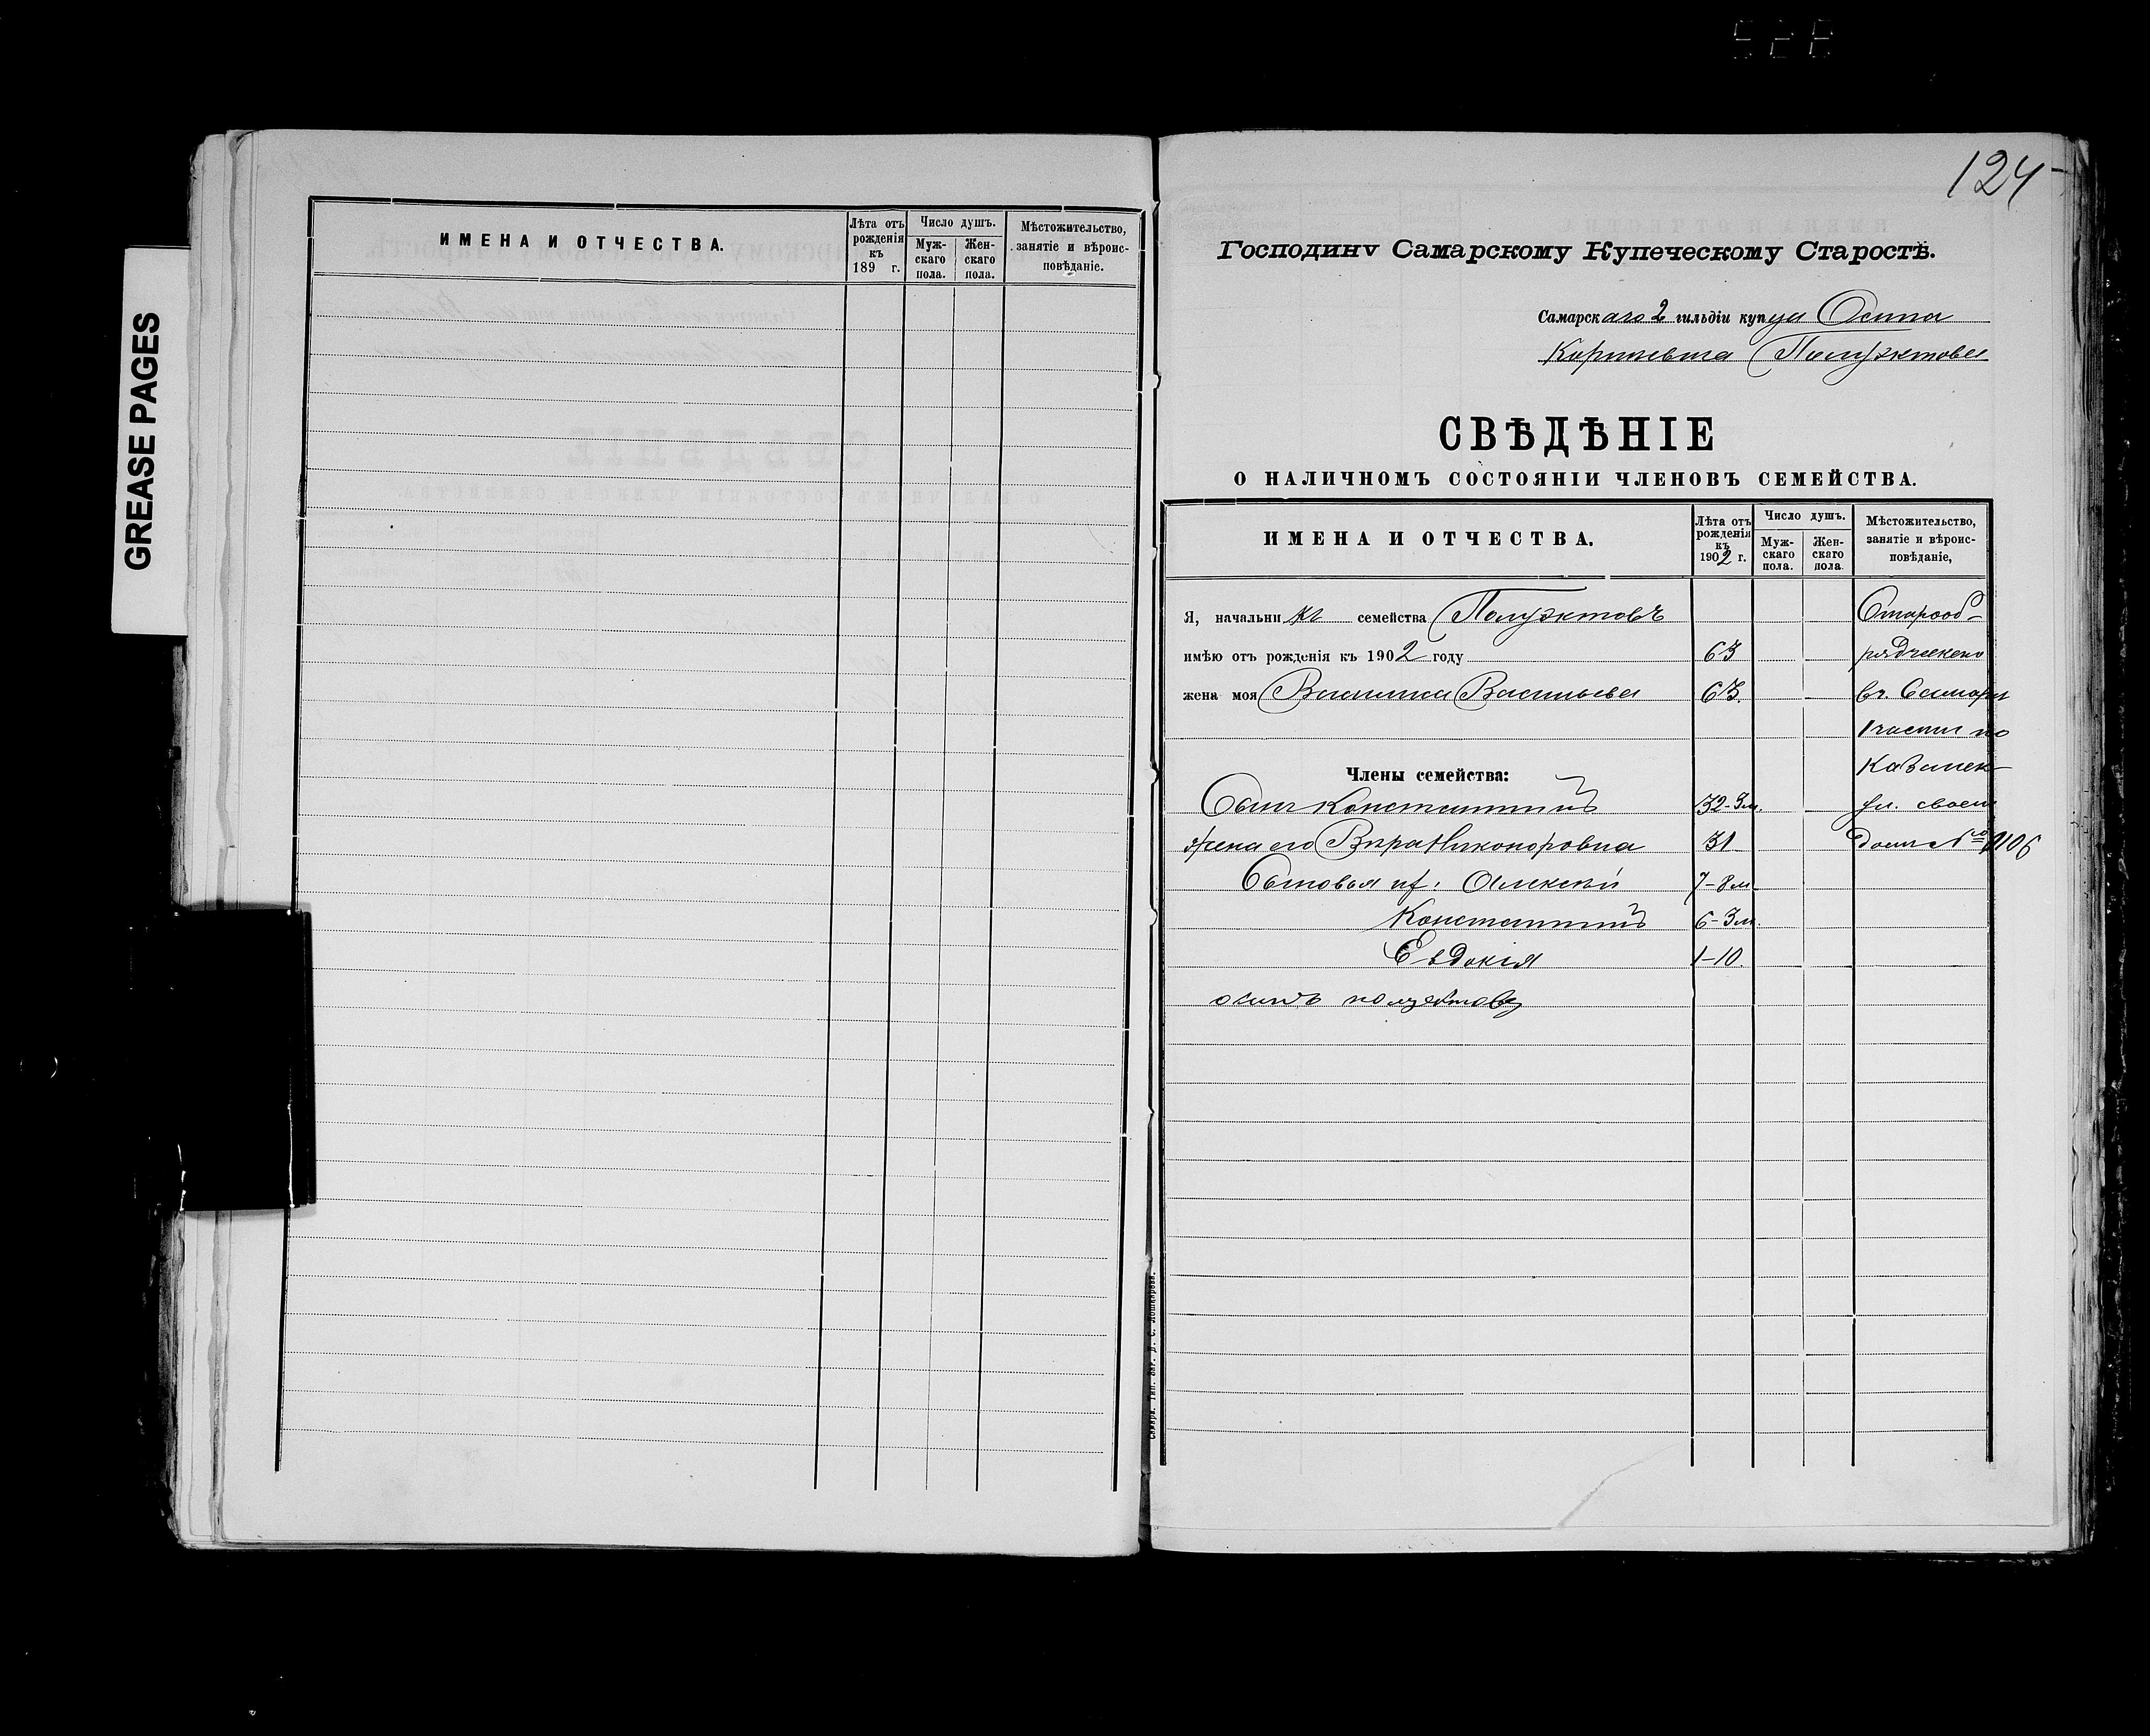 GREASE PAGES
ИМЕНА И ОТЧЕСТВА.
Лѣта отъ рожденія къ 189 г.
Число душъ.
Мужскаго пола.
Женскаго пола.
Мѣстожительство, занятіе и вѣроисповѣданіе.
124
Господину Самарскому Купеческому Старостѣ.
Самарскаго 2 гильдіи купца Осипа
Полуэктова
СВѢДѢНІЕ
О НАЛИЧНОМЪ СОСТОЯНІИ ЧЛЕНОВЪ СЕМЕЙСТВА.
ИМЕНА И ОТЧЕСТВА.
Лѣта отъ рожденія къ 1902 г.
Число душъ.
Мужскаго пола.
Женскаго пола.
Мѣстожительство, занятіе и вѣроисповѣданіе,
Я, начальникъ семейства Полуэктовъ Старооб-
имѣю отъ рожденія къ 1902 году 63
жена моя Васильева 63. въ Самарѣ
1 части по
Члены семейства: Казанск
Сынъ Константинъ 32-3м. ул. своемъ
жена его Вѣра Никоноровна 31 домѣ № 106
Сыновья их: Алексѣй 7-8м
Константинъ 6-3м.
Евдокія 1-10.
осипъ полуектовъ